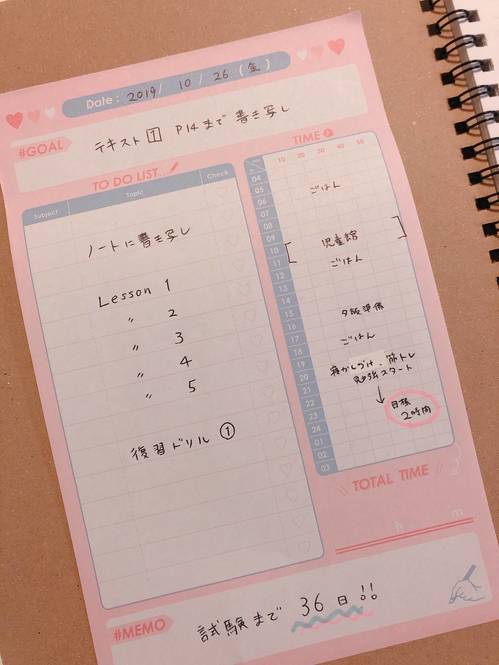 Date : 2019 / 10 / 26 (金)
#GOAL
テキスト1 P14まで書き写し
TO DO LIST
Subject Topic Check
ノートに書き写し
Lesson 1
〃 2
〃 3
〃 4
〃 5
復習ドリル ①
TIME
10 20 30 40 50
04
05 ごはん
06
07
08
09 児童館
10
11 ごはん
12
13
14
15 夕飯準備
16
17 ごはん
18
19 寝かしづけ、筋トレ
20 勉強スタート
21
22 目標
23 2時間
24
01
02
03
TOTAL TIME
h m
#MEMO
試験まで 36日!!